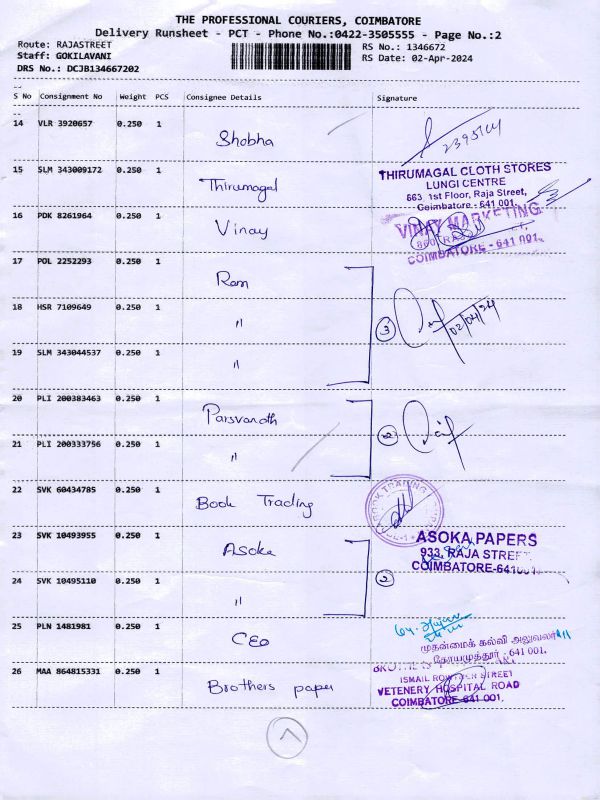 THE PROFESSIONAL COURIERS, COIMBATORE
Delivery Runsheet - PCT - Phone No.:0422-3505555 - Page No.:2
Route: RAJASTREET
RS No.: 1346672
Staff: GOKILAVANI
RS Date: 02-Apr-2024
DRS No.: DCJB134667202
S No Consignment No Weight PCS Consignee Details Signature
14 VLR 3920657 0.250 1 Shobha
15 SLM 343009172 0.250 1 Thirumagal
THIRUMAGAL CLOTH STORES
LUNGI CENTRE
563 1st Floor, Raja Street,
Coimbatore - 641 001.
16 PDK 8261964 0.250 1 Vinay
VINAY MARKETING
COIMBATORE - 641 001.
17 POL 2252293 0.250 1 Ram
18 HSR 7109649 0.250 1 "
3
02/04/24
19 SLM 343044537 0.250 1 "
20 PLI 200383463 0.250 1 Parsvanath
2
21 PLI 200333756 0.250 1 "
22 SVK 60434785 0.250 1 Book Trading
BOOK TRADING
23 SVK 10493955 0.250 1 Asoka
ASOKA PAPERS
933, RAJA STREET
COIMBATORE-641001.
24 SVK 10495110 0.250 1 "
2
25 PLN 1481981 0.250 1 CEO
முதன்மைக் கல்வி அலுவலர்
கோயமுத்தூர் - 641 001.
26 MAA 864815331 0.250 1 Brothers paper
BROTHERS
ISMAIL ROWTHER STREET
VETENERY HOSPITAL ROAD
COIMBATORE-641 001.